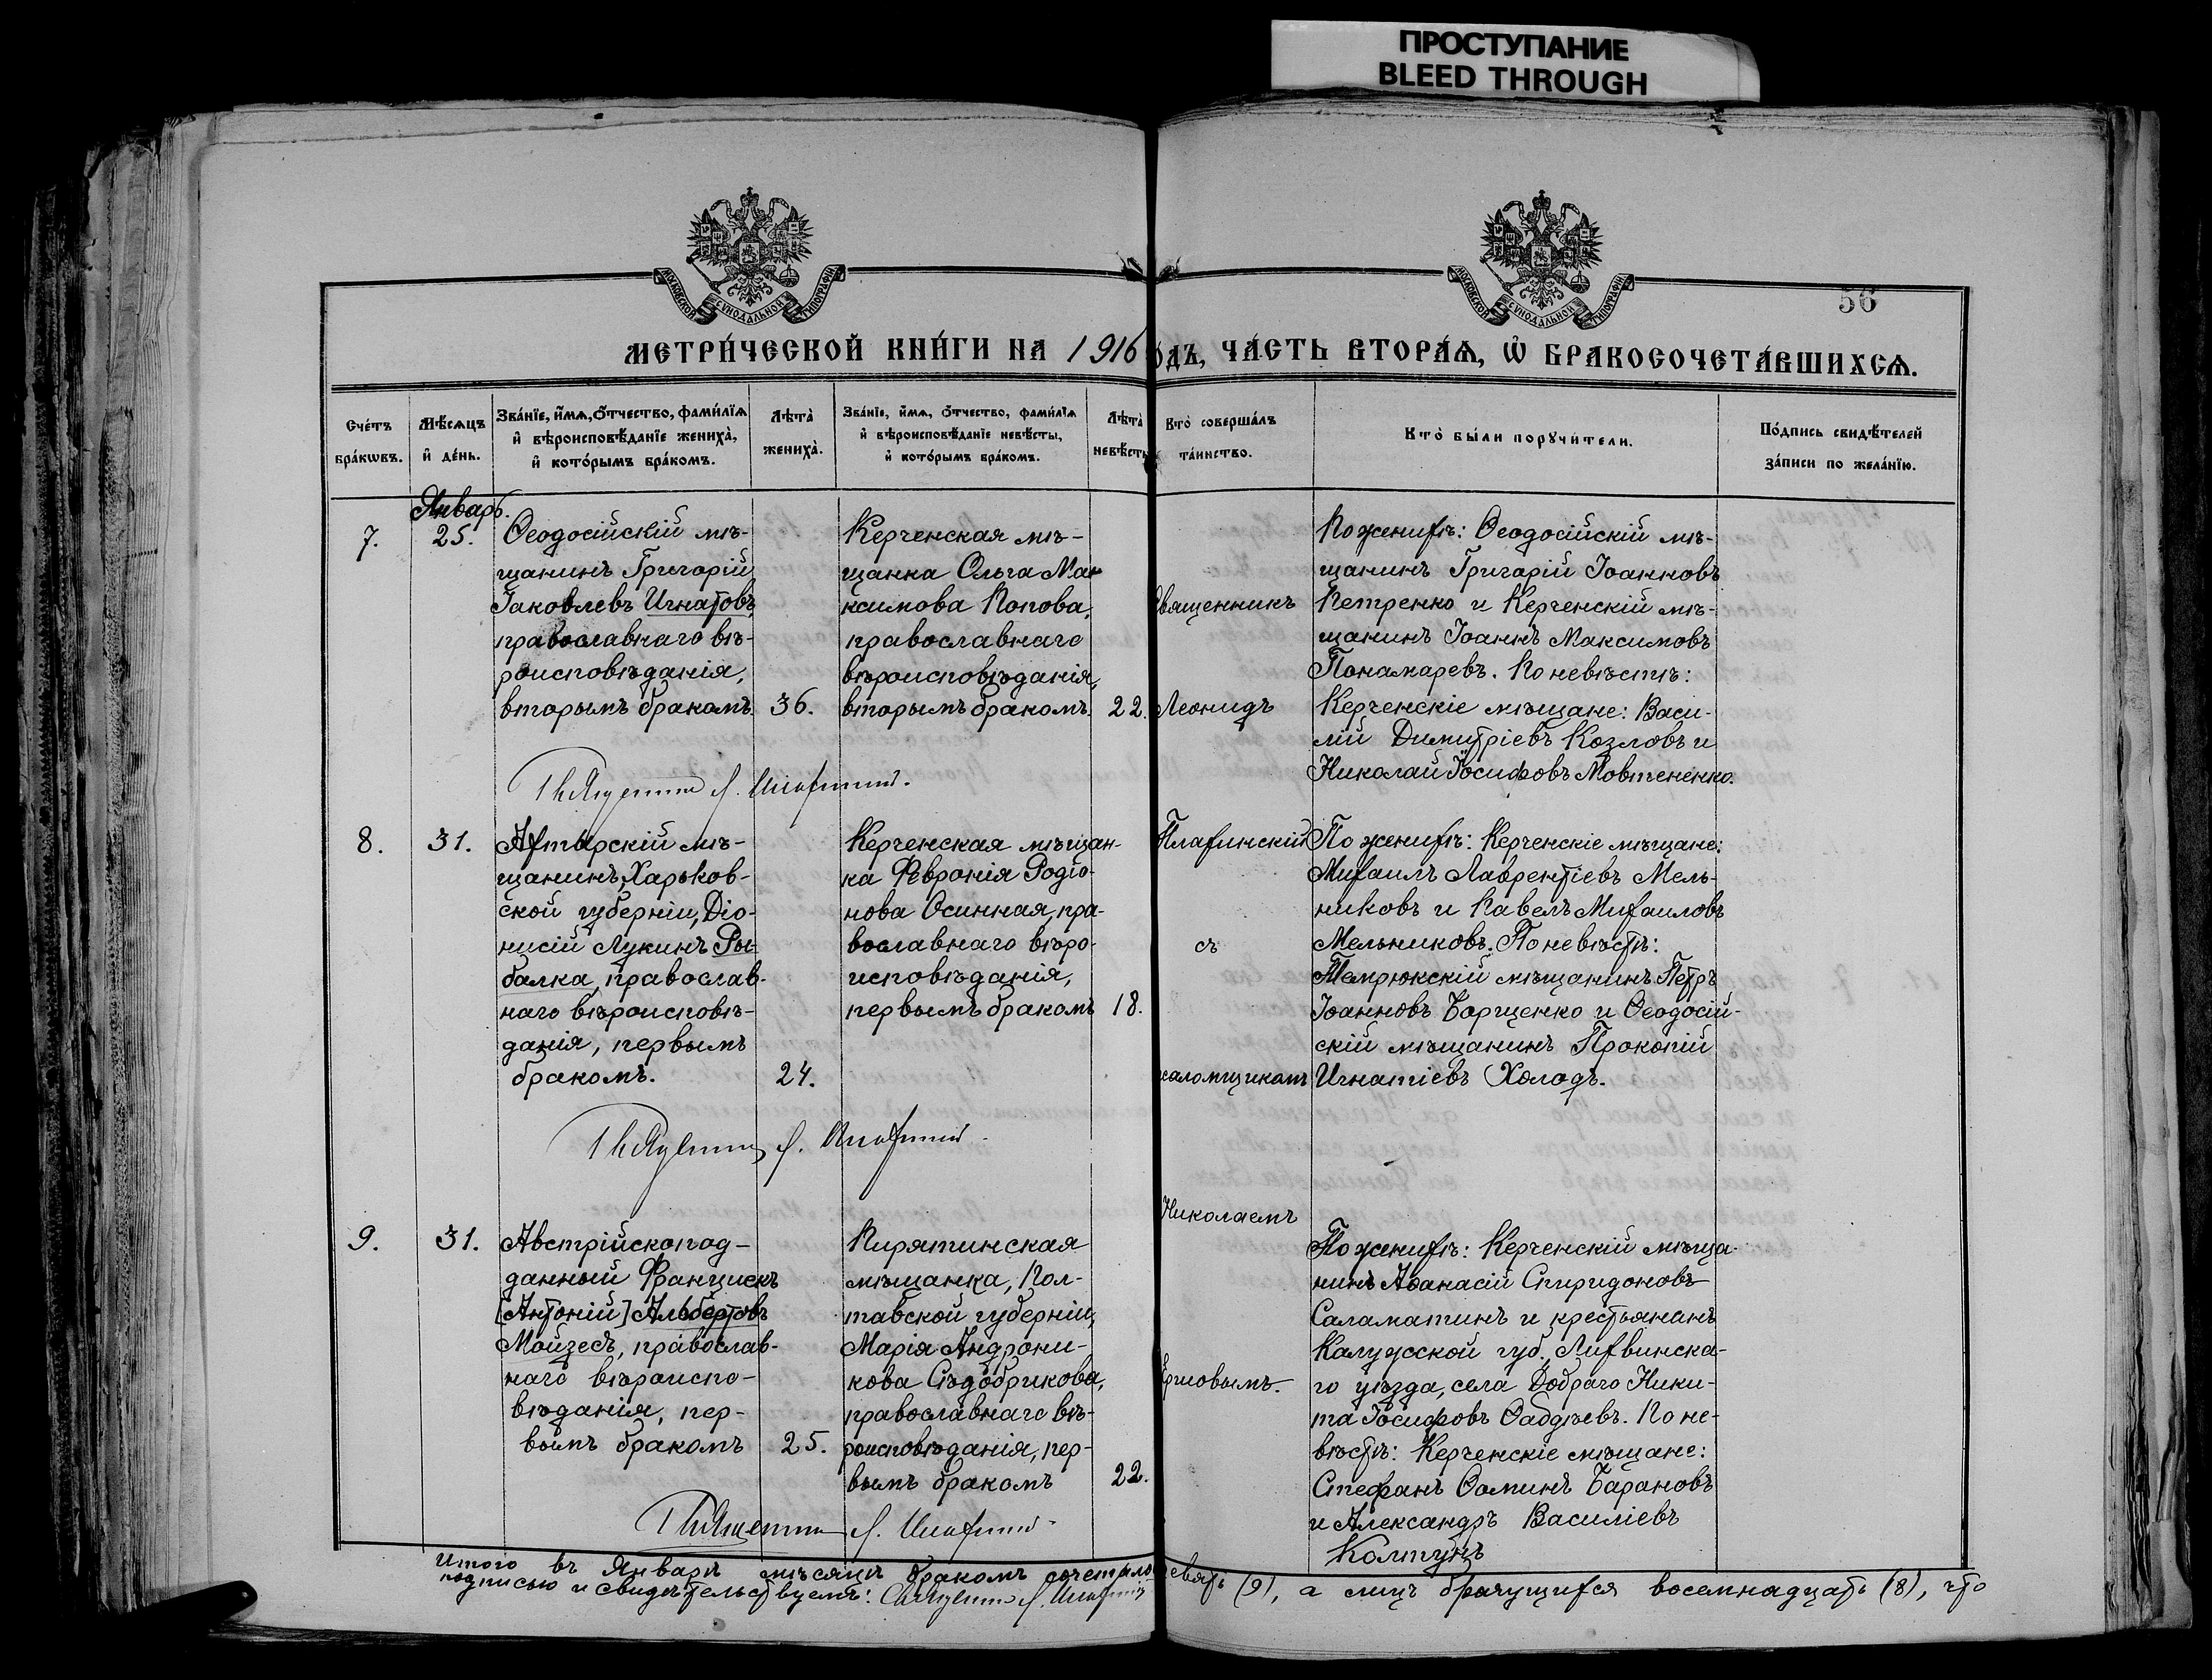 ПРОСТУПАНИЕ
BLEED THROUGH
МОСКОВСКОЙ СѴНОДАЛЬНОЙ ТИПОГРАФІИ
МОСКОВСКОЙ СѴНОДАЛЬНОЙ ТИПОГРАФІИ
56
МЕТРИ́ЧЕСКОЙ КНИ́ГИ НА 1916 о́дъ, ЧА́СТЬ ВТОРА́Ѧ, Ѿ БРАКОСОЧЕТА́ВШИХСѦ.
Сче́тъ
бра́кѡвъ.
Мѣ́сѧцъ
и҆ де́нь.
Зва́нїе, и҆́мѧ, ѻ҆́тчество, фами́лїѧ
и҆ вѣроисповѣ́данїе жениха̀,
и҆ кото́рымъ бра́комъ.
Лѣта̀
жениха̀.
Зва́нїе, и҆́мѧ, ѻ҆́тчество, фами́лїѧ
и҆ вѣроисповѣ́данїе невѣ́сты,
и҆ кото́рымъ бра́комъ.
Лѣта̀
невѣ́сты
Кто̀ соверша́лъ
та́инство.
Кто̀ бы́ли порꙋчи́тели.
По́дпись свидѣ́телей
за́писи по жела́нїю.
Январь.
7.
25.
Ѳеодосійскій мѣ-
щанинъ Григорій
Іаковлевъ Игнатовъ,
православнаго вѣ-
роисповѣданія,
вторымъ бракомъ.
36.
Керченская мѣ-
щанка Ольга Ма-
ксимова Попова,
православнаго
вѣроисповѣданія,
вторымъ бракомъ.
22.
По женихѣ: Ѳеодосійскій мѣ-
щанинъ Григорій Іоанновъ
Петренко и Керченскій мѣ-
щанинъ Іоаннъ Максимовъ
Понамаревъ. По невѣстѣ:
Керченскіе мѣщане: Васи-
лій Димитріевъ Козловъ и
Николай Іосифовъ Мовтененко.
8.
31.
Ахтырскій мѣ-
щанинъ, Харьков-
ской губерніи, Діо-
нисій Лукинъ Ры-
балка, православ-
наго вѣроисповѣ-
данія, первымъ
бракомъ.
24.
Керченская мѣщан-
ка Февронія Родіо-
нова Осинная, пра-
вославнаго вѣро-
исповѣданія,
первымъ бракомъ
18.
Священникъ
Леонидъ
Плахинскій
съ
псаломщикомъ
Николаемъ
Ершовымъ.
По женихѣ: Керченскіе мѣщане:
Михаилъ Лаврентіевъ Мель-
никовъ и Павелъ Михаиловъ
Мельниковъ. По невѣстѣ:
Темрюкскій мѣщанинъ Петръ
Іоанновъ Борщенко и Ѳеодосій-
скій мѣщанинъ Прокопій
Игнатіевъ Холодъ.
9.
31.
Австрійскопод-
данный Францискъ
[Антоній] Альбертовъ
Мойзесъ, православ-
наго вѣроиспо-
вѣданія, пер-
вымъ бракомъ
25.
Пирятинская
мѣщанка, Пол-
тавской губерніи,
Марія Андрони-
кова Сѣдобрикова,
православнаго вѣ-
роисповѣданія, пер-
вымъ бракомъ
22.
По женихѣ: Керченскій мѣща-
нинъ Аѳанасій Спиридоновъ
Саламатинъ и крестьянинъ
Калужской губ. Лихвинска-
го уѣзда, села Добраго Ники-
та Іосифовъ Ѳаддѣевъ. По не-
вѣстѣ: Керченскіе мѣщане:
Стефанъ Ѳоминъ Барановъ
и Александръ Василіевъ
Колтунъ
Итого въ Январѣ мѣсяцѣ бракомъ сочетало девять (9), а лицъ брачущихся восемнадцать (18), что
подписью и свидѣтельствуемъ: